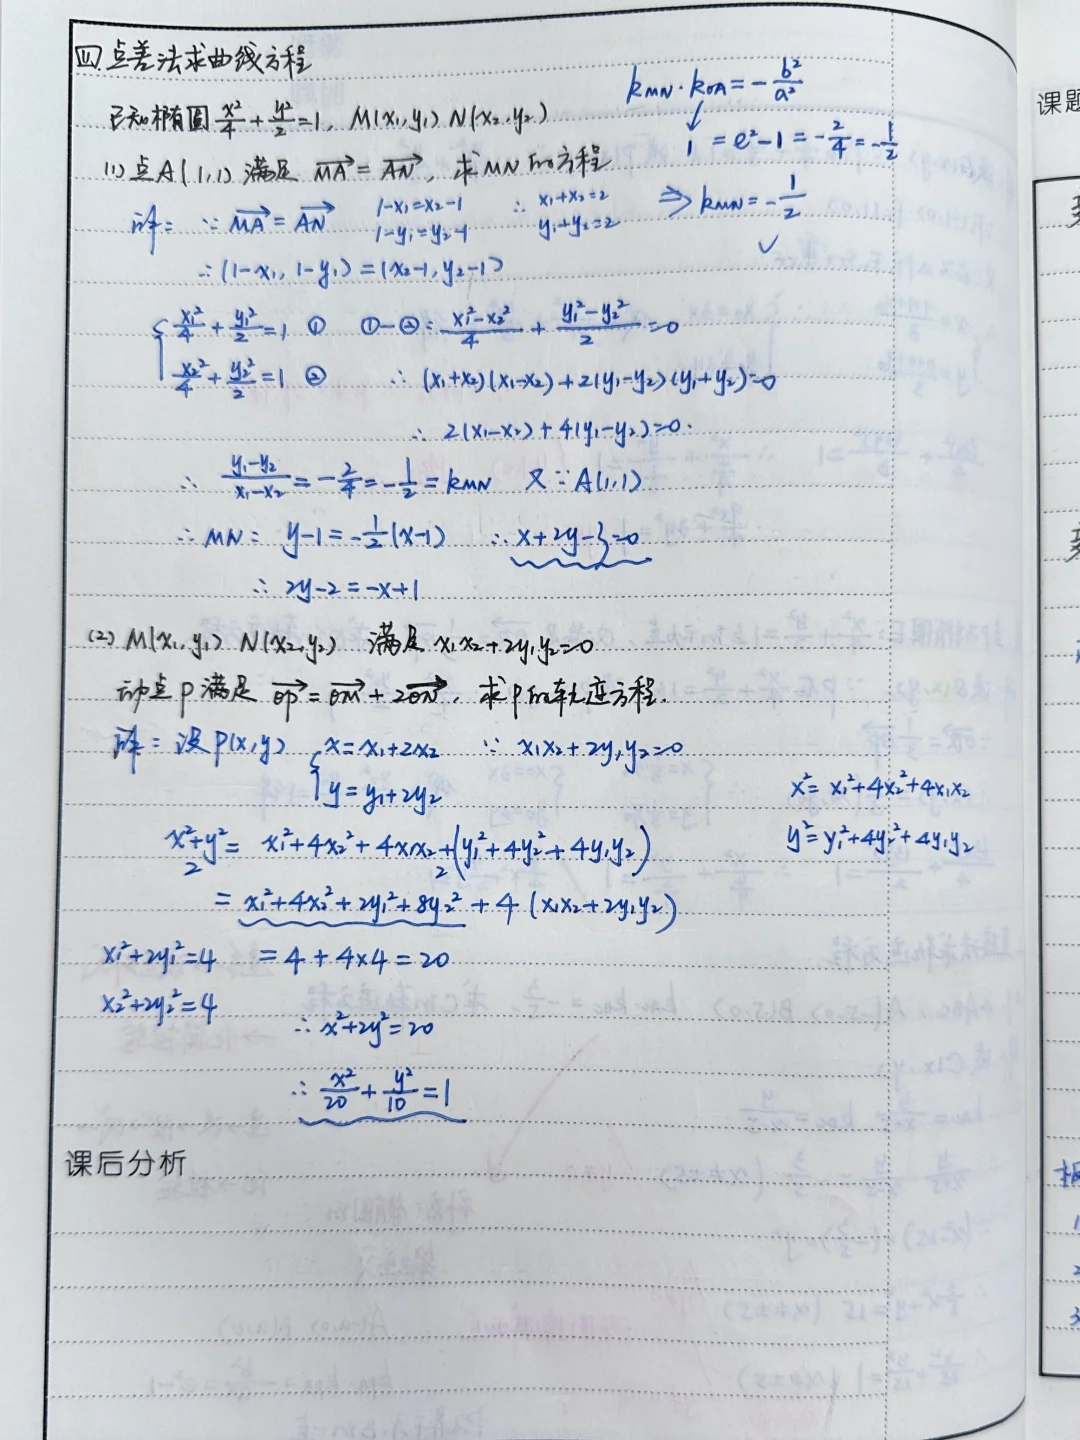 四.点差法求曲线方程
已知椭圆 x²/4 + y²/2 = 1, M(x₁,y₁) N(x₂,y₂)
(1) 点A(1,1)满足 →MA = →AN, 求MN的方程
k_MN · k_OA = -b²/a²
1 = e²-1 = -2/4 = -1/2
⇒ k_MN = -1/2
✓
详: ∵ →MA = →AN  1-x₁=x₂-1  ∴ x₁+x₂=2
1-y₁=y₂-1  y₁+y₂=2
∴ (1-x₁, 1-y₁) = (x₂-1, y₂-1)
{ x₁²/4 + y₁²/2 = 1 ①  ①-②: (x₁²-x₂²)/4 + (y₁²-y₂²)/2 = 0
x₂²/4 + y₂²/2 = 1 ②  ∴ (x₁+x₂)(x₁-x₂)+2(y₁-y₂)(y₁+y₂)=0
∴ 2(x₁-x₂)+4(y₁-y₂)=0.
∴ (y₁-y₂)/(x₁-x₂) = -2/4 = -1/2 = k_MN  又∵ A(1,1)
∴ MN: y-1 = -1/2(x-1)  ∴ x+2y-3=0
∴ 2y-2=-x+1
(2) M(x₁,y₁) N(x₂,y₂) 满足 x₁x₂+2y₁y₂=0
动点P满足 →OP = →OM + 2→ON, 求P的轨迹方程.
详: 设P(x,y) { x=x₁+2x₂  ∵ x₁x₂+2y₁y₂=0
y=y₁+2y₂
x² = x₁²+4x₂²+4x₁x₂
y² = y₁²+4y₂²+4y₁y₂
x²+2y² = x₁²+4x₂²+4x₁x₂+2(y₁²+4y₂²+4y₁y₂)
= x₁²+4x₂²+2y₁²+8y₂²+4(x₁x₂+2y₁y₂)
x₁²+2y₁²=4  = 4+4×4 = 20
x₂²+2y₂²=4
∴ x²+2y²=20
∴ x²/20 + y²/10 = 1
课后分析
课题
1
2
3